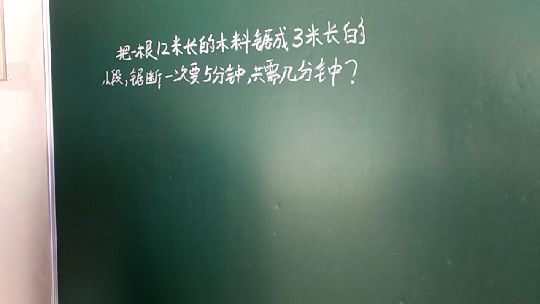 把一根12米长的木料锯成3米长的
小段,锯断一次要5分钟,共需几分钟?